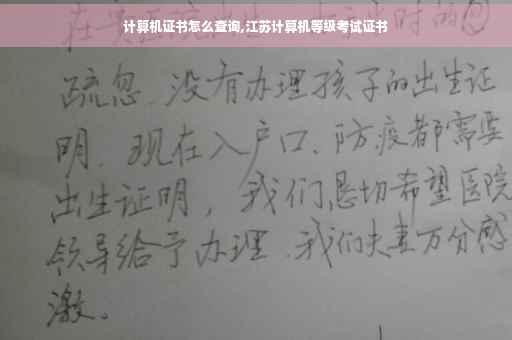 计算机证书怎么查询,江苏计算机等级考试证书
疏忽、没有办理孩子的出生证
明、现在入户口、防疫都需要
出生证明，我们恳切希望医院
领导给予办理、我们夫妻万分感
激。